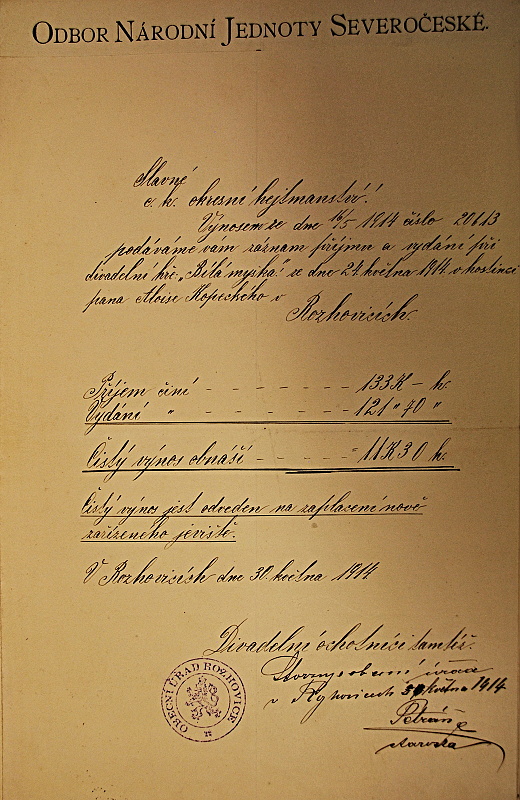 ODBOR NÁRODNÍ JEDNOTY SEVEROČESKÉ.
Slavné
c. k. okresní hejtmanství!
Výnosem ze dne 16/5 1914 číslo 20613
podáváme vám záznam příjmu a vydání při
divadelní hře „Bílá myška" ze dne 24 května 1914 v hostinci
pana Aloise Kopeckého v
Rozhovicích.
Příjem činí - - - - - - - - 133 K – h.
Vydání " - - - - - - - 121 " 70 "
Čistý výnos obnáší - - - - - 11 K 30 h.
Čistý výnos jest odveden na zaplacení nově
zařízeného jeviště.
V Rozhovicích dne 30 května 1914
Divadelní ochotníci tamtéž.
obecní
v 30 května 1914
Petráň
starosta
OBECNÍ ÚŘAD ROZHOVICE